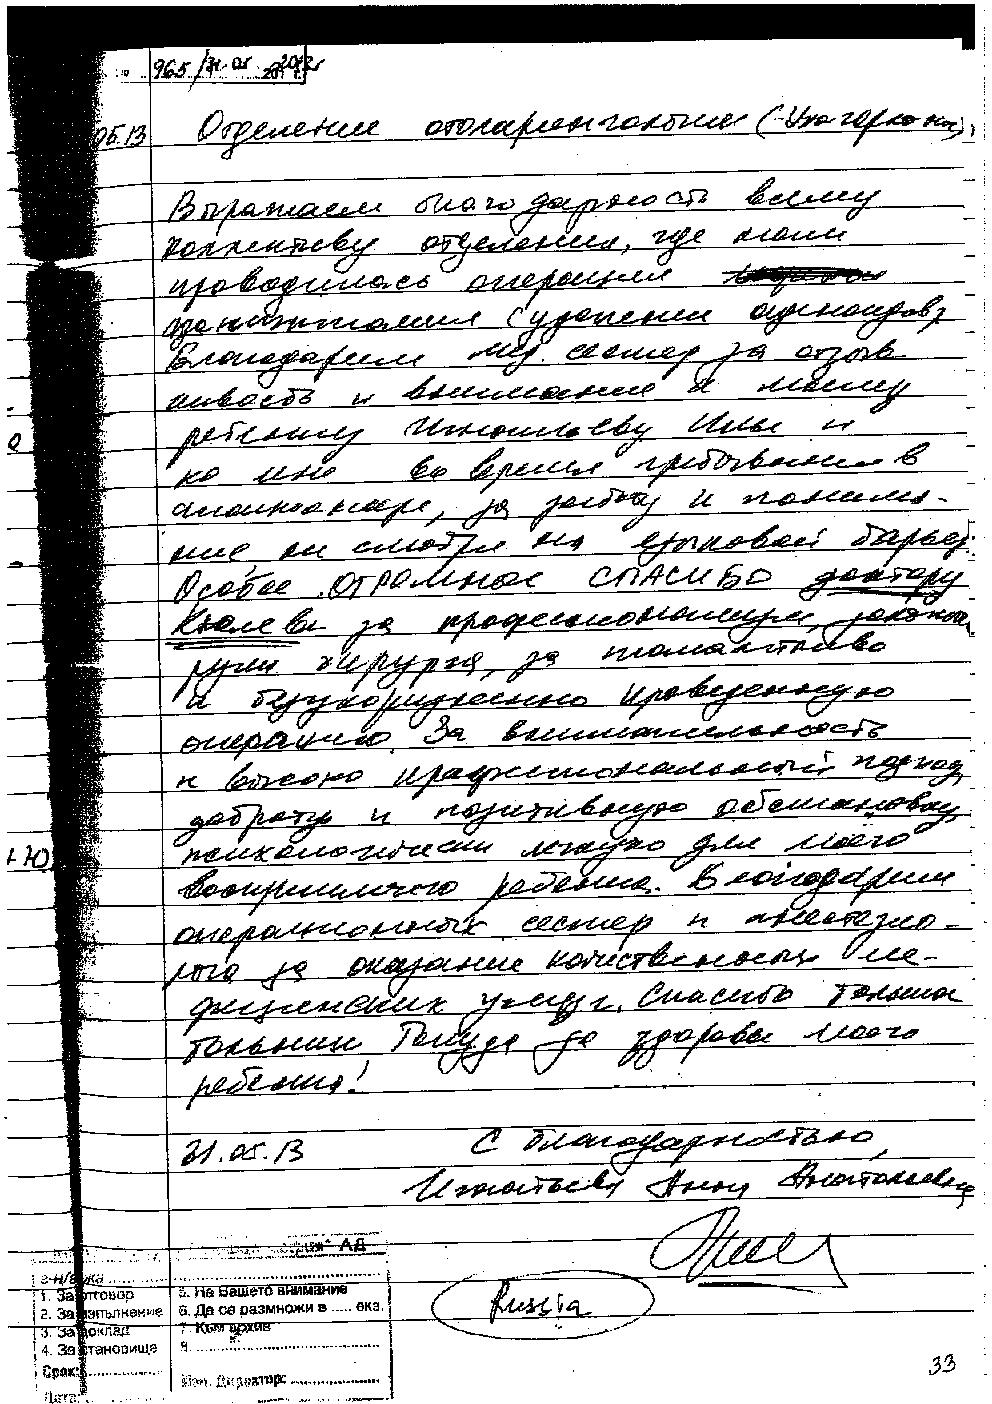 965/31.05 2013г
05.13 Отделение отоларингологии (Ухо горло нос),
Выражаем благодарность всему
коллективу отделения, где нами
проводилась операция
(удаления аденоидов)
Благодарим мед. сестер за отзыв-
чивость и внимание к моему
ребенку Игнатьеву Илье и
ко мне во время пребывания в
стационаре, за заботу и понима-
ние, не смотря на языковой барьер.
Особое ОГРОМНОЕ СПАСИБО доктору
за профессионализм, золотые
руки хирурга, за талантливо
и безукоризненно проведенную
операцию. За внимательность
и высоко профессиональный подход,
доброту и позитивную обстановку,
психологически легкую для моего
восприимчивого ребенка. Благодарим
операционных сестер и анестезио-
лога за оказание качественных ме-
дицинских услуг. Спасибо
за здоровье моего
ребенка!
31.05.13 С благодарностью,
Игнатьева Анна Анатольевна
АД
Russia
1. За отговор
2. За изпълнение
3. За доклад
4. За становище
Срок:
Дата:
5. На Вашето внимание
6. Да се размножи в ..... екз.
7. Към архив
8.
Изп. Директор:
33